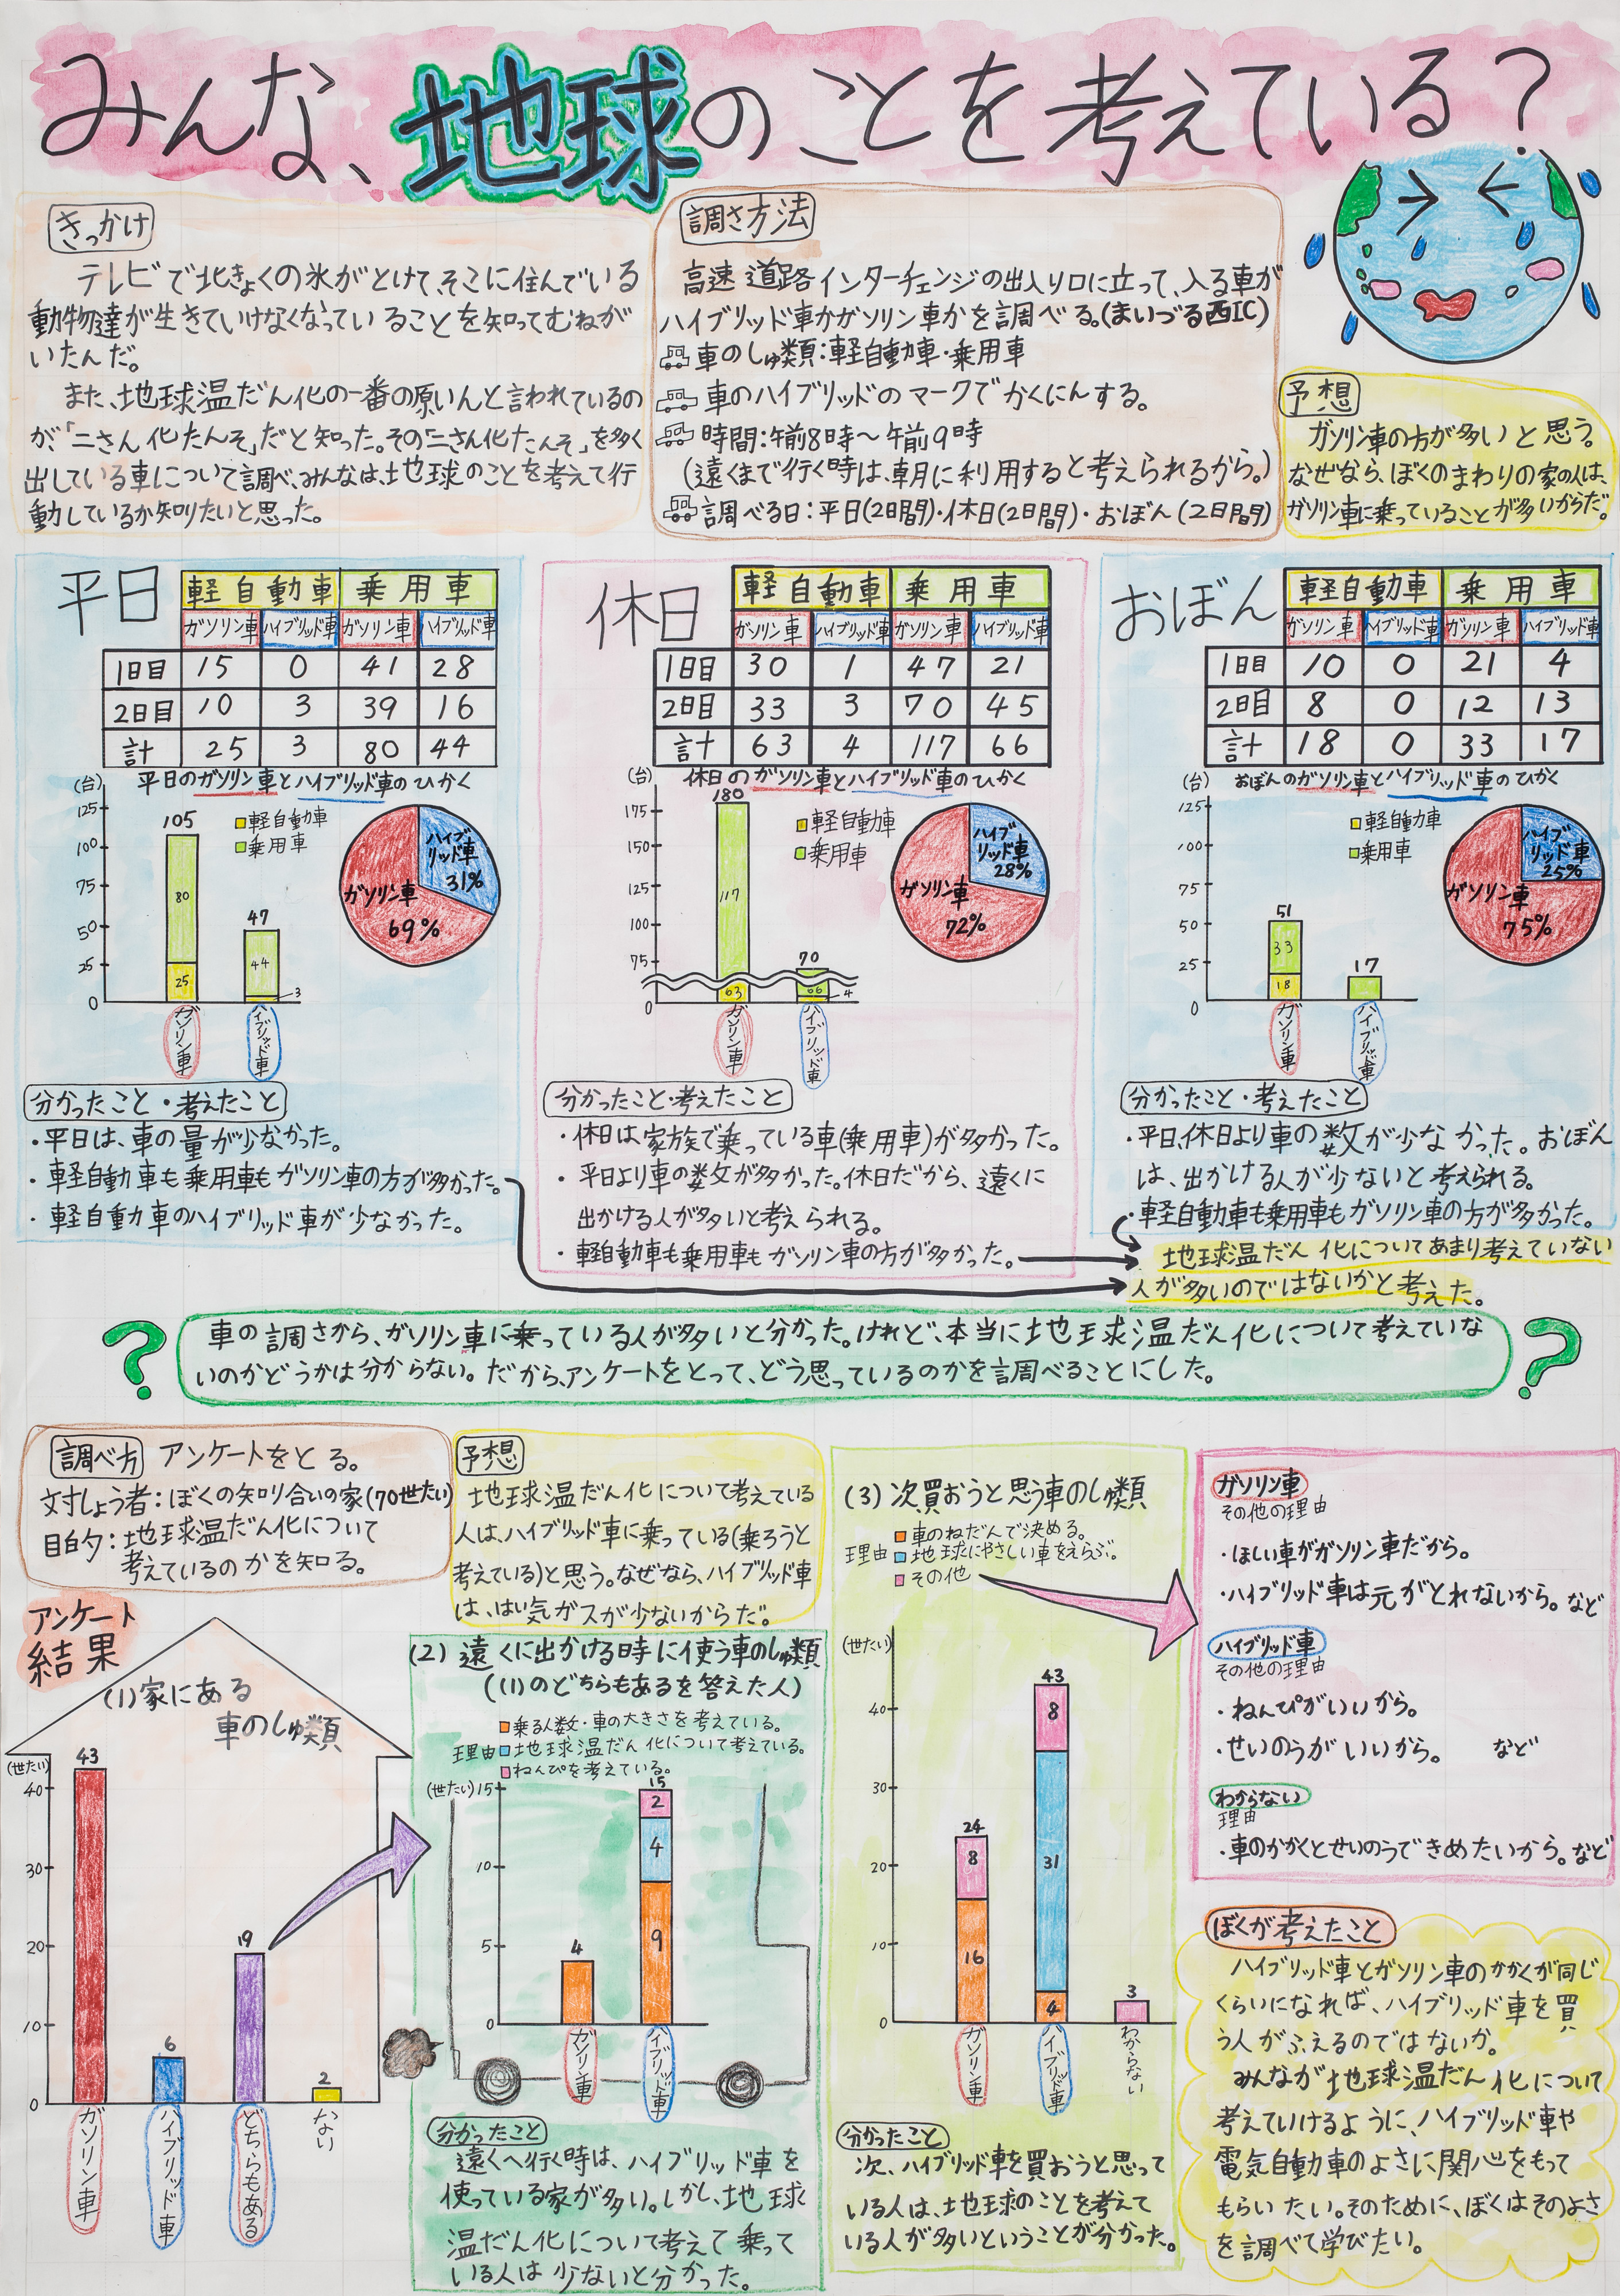 みんな、地球のことを考えている?
きっかけ
テレビで北きょくの氷がとけて、そこに住んでいる
動物達が生きていけなくなっていることを知ってむねが
いたんだ。
また、地球温だん化の一番の原いんと言われているの
が、「二さん化たんそ」だと知った。その「二さん化たんそ」を多く
出している車について調べ、みんなは、地球のことを考えて行
動しているか知りたいと思った。
調さ方法
高速道路インターチェンジの出入り口に立って、入る車が
ハイブリッド車かガソリン車かを調べる。(まいづる西IC)
車のしゅ類:軽自動車・乗用車
車のハイブリッドのマークでかくにんする。
時間:午前8時〜午前9時
(遠くまで行く時は、朝に利用すると考えられるから。)
調べる日:平日(2日間)・休日(2日間)・おぼん(2日間)
予想
ガソリン車の方が多いと思う。
なぜなら、ぼくのまわりの家の人は、
ガソリン車に乗っていることが多いからだ。
平日
軽自動車 乗用車
ガソリン車 ハイブリッド車 ガソリン車 ハイブリッド車
1日目 15 0 41 28
2日目 10 3 39 16
計 25 3 80 44
平日のガソリン車とハイブリッド車のひかく
(台)
125
100
75
50
25
0
105
80
25
47
44
3
軽自動車
乗用車
ガソリン車
ハイブリッド車
ハイブ
リッド車
31%
ガソリン車
69%
分かったこと・考えたこと
・平日は、車の量が少なかった。
・軽自動車も乗用車もガソリン車の方が多かった。
・軽自動車のハイブリッド車が少なかった。
休日
軽自動車 乗用車
ガソリン車 ハイブリッド車 ガソリン車 ハイブリッド車
1日目 30 1 47 21
2日目 33 3 70 45
計 63 4 117 66
休日のガソリン車とハイブリッド車のひかく
(台)
175
150
125
100
75
0
180
117
63
70
66
4
軽自動車
乗用車
ガソリン車
ハイブリッド車
ハイブ
リッド車
28%
ガソリン車
72%
分かったこと・考えたこと
・休日は家族で乗っている車(乗用車)が多かった。
・平日より車の数が多かった。休日だから、遠くに
出かける人が多いと考えられる。
・軽自動車も乗用車もガソリン車の方が多かった。
おぼん
軽自動車 乗用車
ガソリン車 ハイブリッド車 ガソリン車 ハイブリッド車
1日目 10 0 21 4
2日目 8 0 12 13
計 18 0 33 17
おぼんのガソリン車とハイブリッド車のひかく
(台)
125
100
75
50
25
0
51
33
18
17
軽自動車
乗用車
ガソリン車
ハイブリッド車
ハイブ
リッド車
25%
ガソリン車
75%
分かったこと・考えたこと
・平日、休日より車の数が少なかった。おぼん
は、出かける人が少ないと考えられる。
・軽自動車も乗用車もガソリン車の方が多かった。
地球温だん化についてあまり考えていない
人が多いのではないかと考えた。
?
車の調さから、ガソリン車に乗っている人が多いと分かった。けれど、本当に地球温だん化について考えていな
いのかどうかは分からない。だから、アンケートをとって、どう思っているのかを調べることにした。
?
調べ方 アンケートをとる。
対しょう者:ぼくの知り合いの家(70世たい)
目的:地球温だん化について
考えているのかを知る。
予想
地球温だん化について考えている
人は、ハイブリッド車に乗っている(乗ろうと
考えている)と思う。なぜなら、ハイブリッド車
は、はい気ガスが少ないからだ。
アンケート
結果
(1)家にある
車のしゅ類
(世たい)
40
30
20
10
0
43
6
19
2
ガソリン車
ハイブリッド車
どちらもある
ない
(2)遠くに出かける時に使う車のしゅ類
((1)のどちらもあるを答えた人)
乗る人数・車の大きさを考えている。
理由 地球温だん化について考えている。
ねんぴを考えている。
(世たい)
15
10
5
0
4
15
2
4
9
ガソリン車
ハイブリッド車
分かったこと
遠くへ行く時は、ハイブリッド車を
使っている家が多い。しかし、地球
温だん化について考えて乗って
いる人は少ないと分かった。
(3)次買おうと思う車のしゅ類
車のねだんで決める。
理由 地球にやさしい車をえらぶ。
その他
(世たい)
40
30
20
10
0
24
8
16
43
8
31
4
3
ガソリン車
ハイブリッド車
わからない
分かったこと
次、ハイブリッド車を買おうと思って
いる人は、地球のことを考えて
いる人が多いということが分かった。
ガソリン車
その他の理由
・ほしい車がガソリン車だから。
・ハイブリッド車は元がとれないから。など
ハイブリッド車
その他の理由
・ねんぴがいいから。
・せいのうがいいから。 など
わからない
理由
・車のかかくとせいのうできめたいから。など
ぼくが考えたこと
ハイブリッド車とガソリン車のかかくが同じ
くらいになれば、ハイブリッド車を買
う人がふえるのではないか。
みんなが地球温だん化について
考えていけるように、ハイブリッド車や
電気自動車のよさに関心をもって
もらいたい。そのために、ぼくはそのよさ
を調べて学びたい。